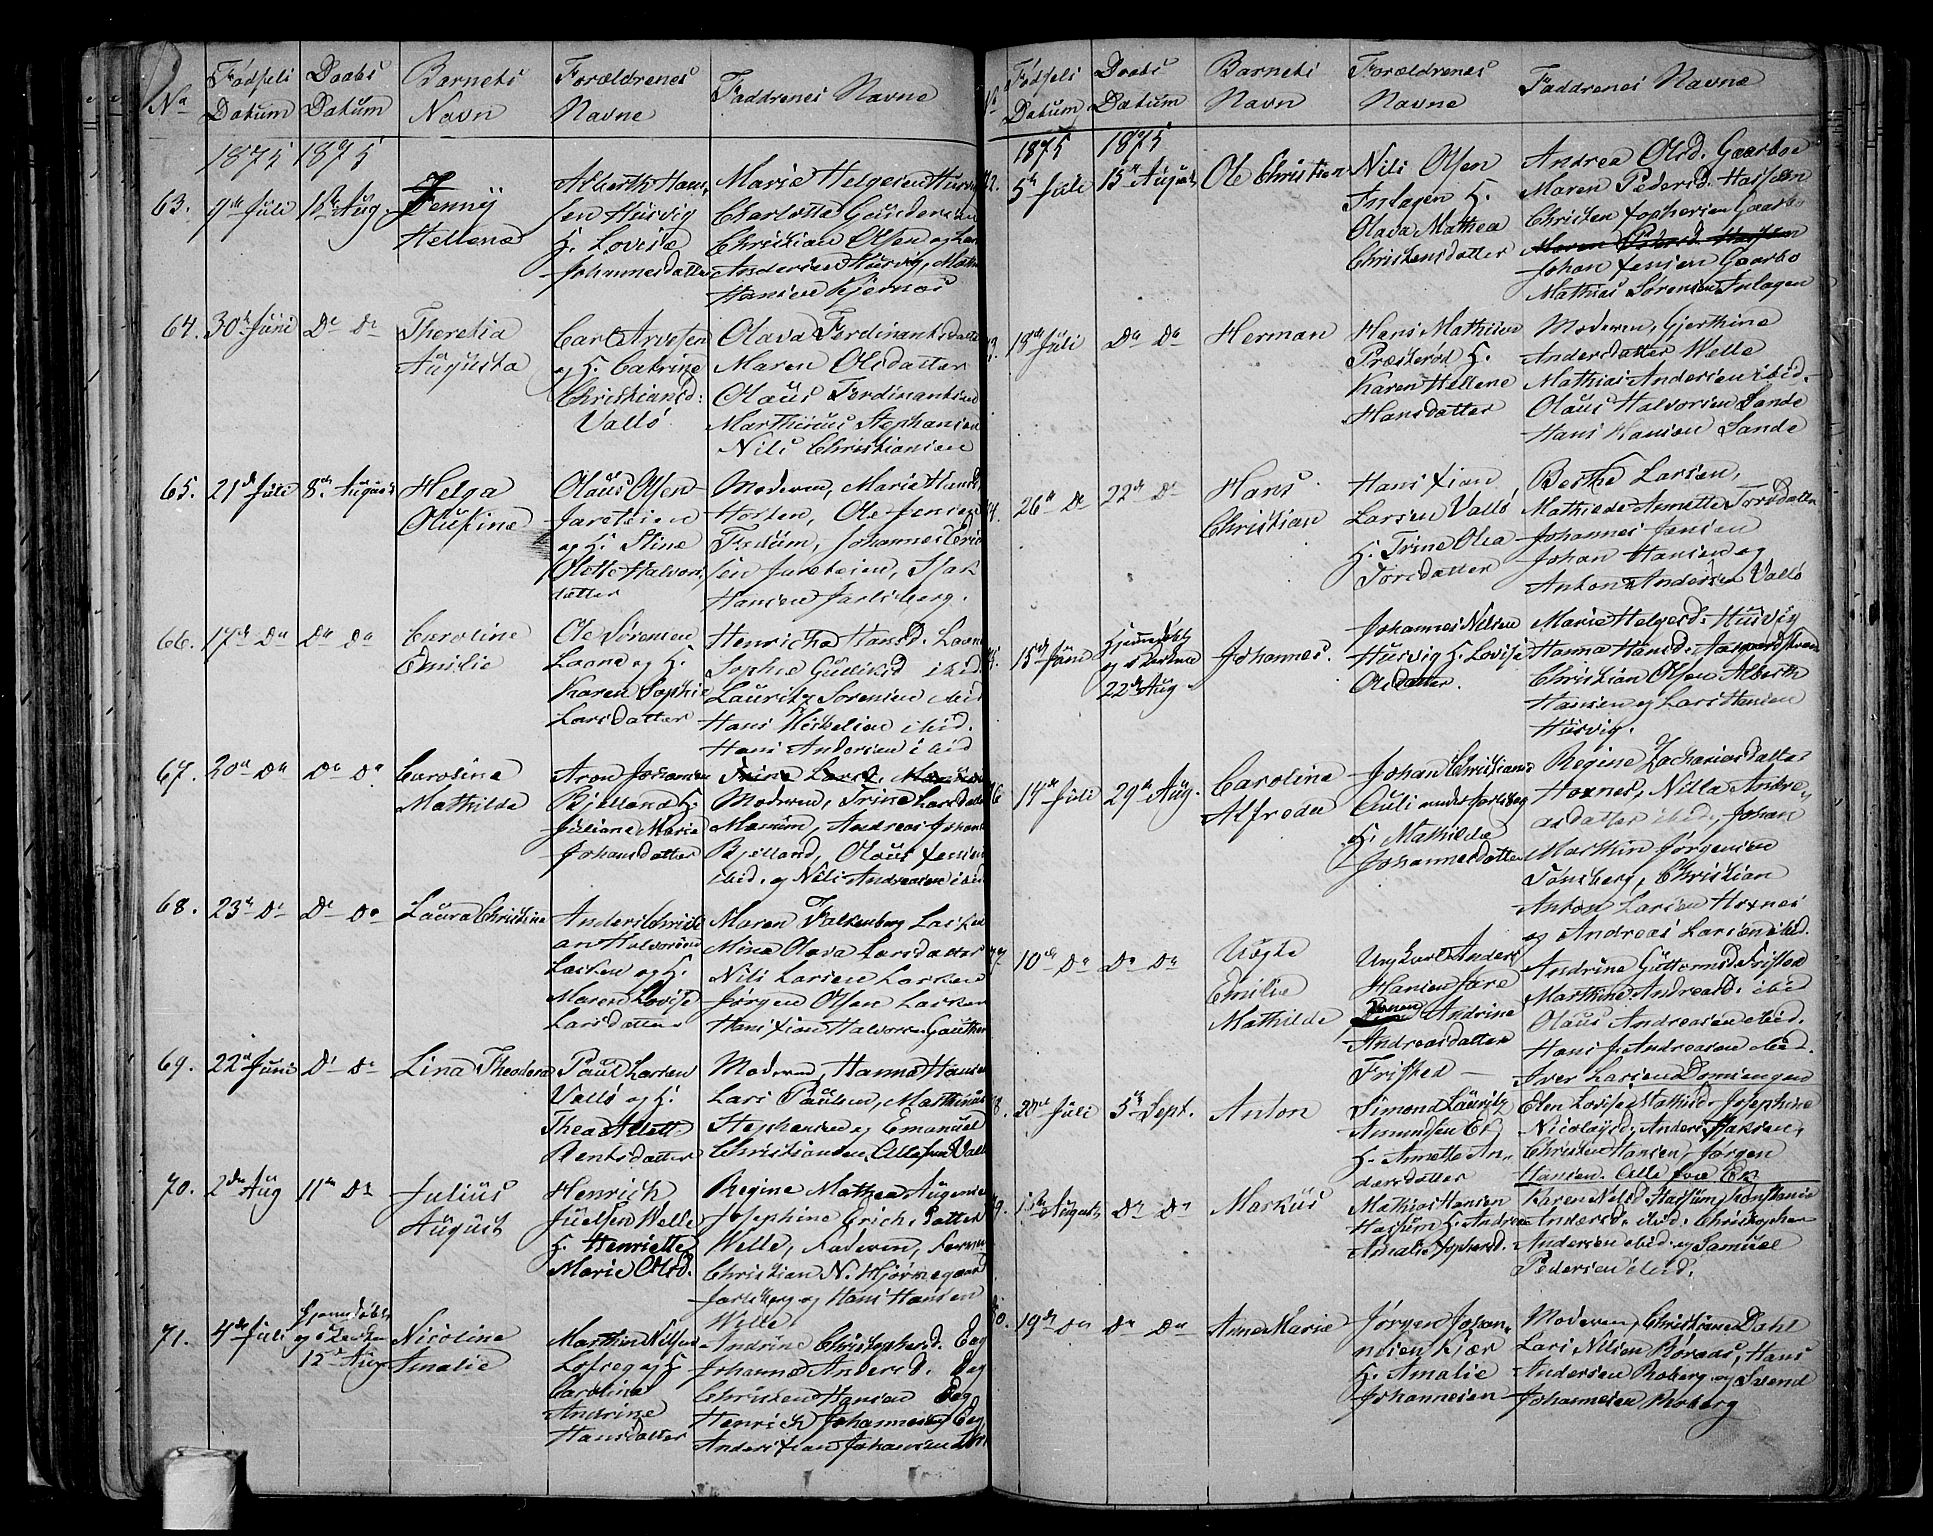 No Fødsels Datum Daabs Datum Barnets Navn Forældrenes Navne Faddrenes Navne
1875 1875
63. 9de Juli 1ste Aug. Jenny Hellene
Alberth Han-
sen Husvig
H. Lovise
Johannesdatter
Marie Helgesen
Charlotta
Christian Olsen og
Andersen Husvig,
Hansen Kjernæs
64. 30te Juni Do Do Theresia Augusta
Carl Arvesen
og H. Catrine
Christiansd:
Vallø
Olava Ferdinantsdatter
Maren Olsdatter
Olaus Ferdinantsen
Marthinus Stephansen
Nils Christiansen
65. 21de Juli 8de August Helga Olufine
Olaus Olsen
Jarsteien
og H. Stine
Olette Halvors
datter
Moderen, Marie Hansd.
Horten, Ole Jensen
Johannes Eric
sen Jarsteien, Isak
Hansen Jarlsberg.
66. 17de Do Do Do Caroline Emilie
Ole Sørensen
Laane og H.
Karen Sophie
Larsdatter
Henricha Hansd. Laane
Sophie Gulliksd ibid
Lauritz Sørensen ibid
Hans Mikkelsen ibid.
Hans Andersen ibid
67. 20de Do Do Do Carolina Mathilde
Aron Johansen
Bjelland H.
Juliane Marie
Johansdatter
Moderen, Trine Larsdatter
Andreas Johans
Bjelland, Olaus Jensen
ibid. og Nils Andreasen ibid
68. 23de Do Do Do Laura Christine
Anders Christi
an Halvorsen
Lasken og H.
Maren Lovise
Larsdatter
Maren Falkenberg Lasken
Mina Olava Larsdatter
Nils Larsen Lasken
Jørgen Olsen Lasken
Hans Xian Halvorsen
69. 22de Juni Do Do Lina Theodora
Paul Larsen
Vallø og H.
Thea Allette
Bentsdatter
Moderen, Hanna Hansen
Lars Paulsen, Marthinus
Stephansen og Emanuel
Christiansen, Alle fra Vallø
70. 2den Aug 11te Do Julius August
Henrich
Juelsen Welle
H. Henriette
Marie Olsd.
Regine Mathea Augensen
Josephine Erichs Datter
Welle, Faderen,
Christian N. Hjørnegaard
Jarlsberg og Hans Hansen
Welle
71. 4de Juli Hjemmedøbt og i Kirken 15de Aug Nicoline Amalie
Marthin Nilsen
og H.
Caroline
Andrine
Hansdatter
Andrine Christophersd. Eeg
Johanne Andersd. Eeg
Christen Hansen Eeg
Henrich Johannesen Eeg
Anders Xian Johansen
No Fødsels Datum Daabs Datum Barnets Navn Forældrenes Navne Faddrenes Navne
1875 1875
5te Juli 15de August Ole Christian
Nils Olsen
Inlagen H.
Olava Mathea
Christensdatter
Andrea Olsd. Gaarbo
Maren Pedersd.
Christen Xophersen Gaarbo
Johan Jensen Gaarbo
Mathias Sørensen Inlagen
18de Juli Do Do Herman
Hans Mathisen
Præsterød H.
Karen Hellene
Hansdatter
Moderen, Gjerthine
Andersdatter Welle
Mathias Andersen ibid.
Olaus Halvorsen Sande
Hans Hansen Sande
26de Do 22de Do Hans Christian
Hans Xian
Larsen Vallø
H. Trine Olea
Torsdatter
Berthe Larsen,
Mathilde Annette Torsdatter
Johannes Jensen
Johan Hansen og
Anton Andersen Vallø
15de Juni Hjemmedøbt og i Kirken 22de Aug Johannes.
Johannes Nilsen
Husvig H. Lovise
Olsdatter.
Marie Helgesd. Husvig
Hanna Hansd. Aasgaardstrand
Christian Olsen Alberth
Hansen og Lars Hansen
Husvig.
14de Juli 29de Aug. Carolina Alfreda
Johan Christians
Auli under Jarlsberg
H. Mathilde
Johannesdatter
Regine Zachariasdatter
Hoxnes, Nilla Andre-
asdatter ibid, Johan
Marthin Jørgensen
Tønsberg, Christian
Anton Larsen Hoxnes
og Andreas Larsen ibid.
10de Do Do Do Emilie Mathilde
Ungkarl Anders
Hansen Jare
Andrine
Andreasdatter
Fristad
Andrine Guttormsd Fristad
Marthine Andreasd. ibid
Olaus Andreasen ibid.
Hans J. Andreasen ibid.
Iver Larsen
Juli 5te Sept. Anton
Simond Lauritz
Amundsen Ek
H. Annette An-
dersdatter
Elen Lovise Mathisd. Josephine
Nicolaysd. Anders
Christen Hansen, Jørgen
Hansen. Alle fra Ek
1ste August Do Do Markus
Mathias Hansen
H. Andrea
Amalie Xophersd.
Nilsd. Constanse
Andersd. ibid. Christopher
Andersen ibid. og Samuel
Pedersen ibid.
19de Do Do Do Anne Marie
Jørgen Johan-
nesen Kjær
H. Amalie
Johannesen
Moderen, Christiane Dahl
Lars Nilsen Roraas, Hans
Andersen Roberg og Svend
Johannesen Roberg